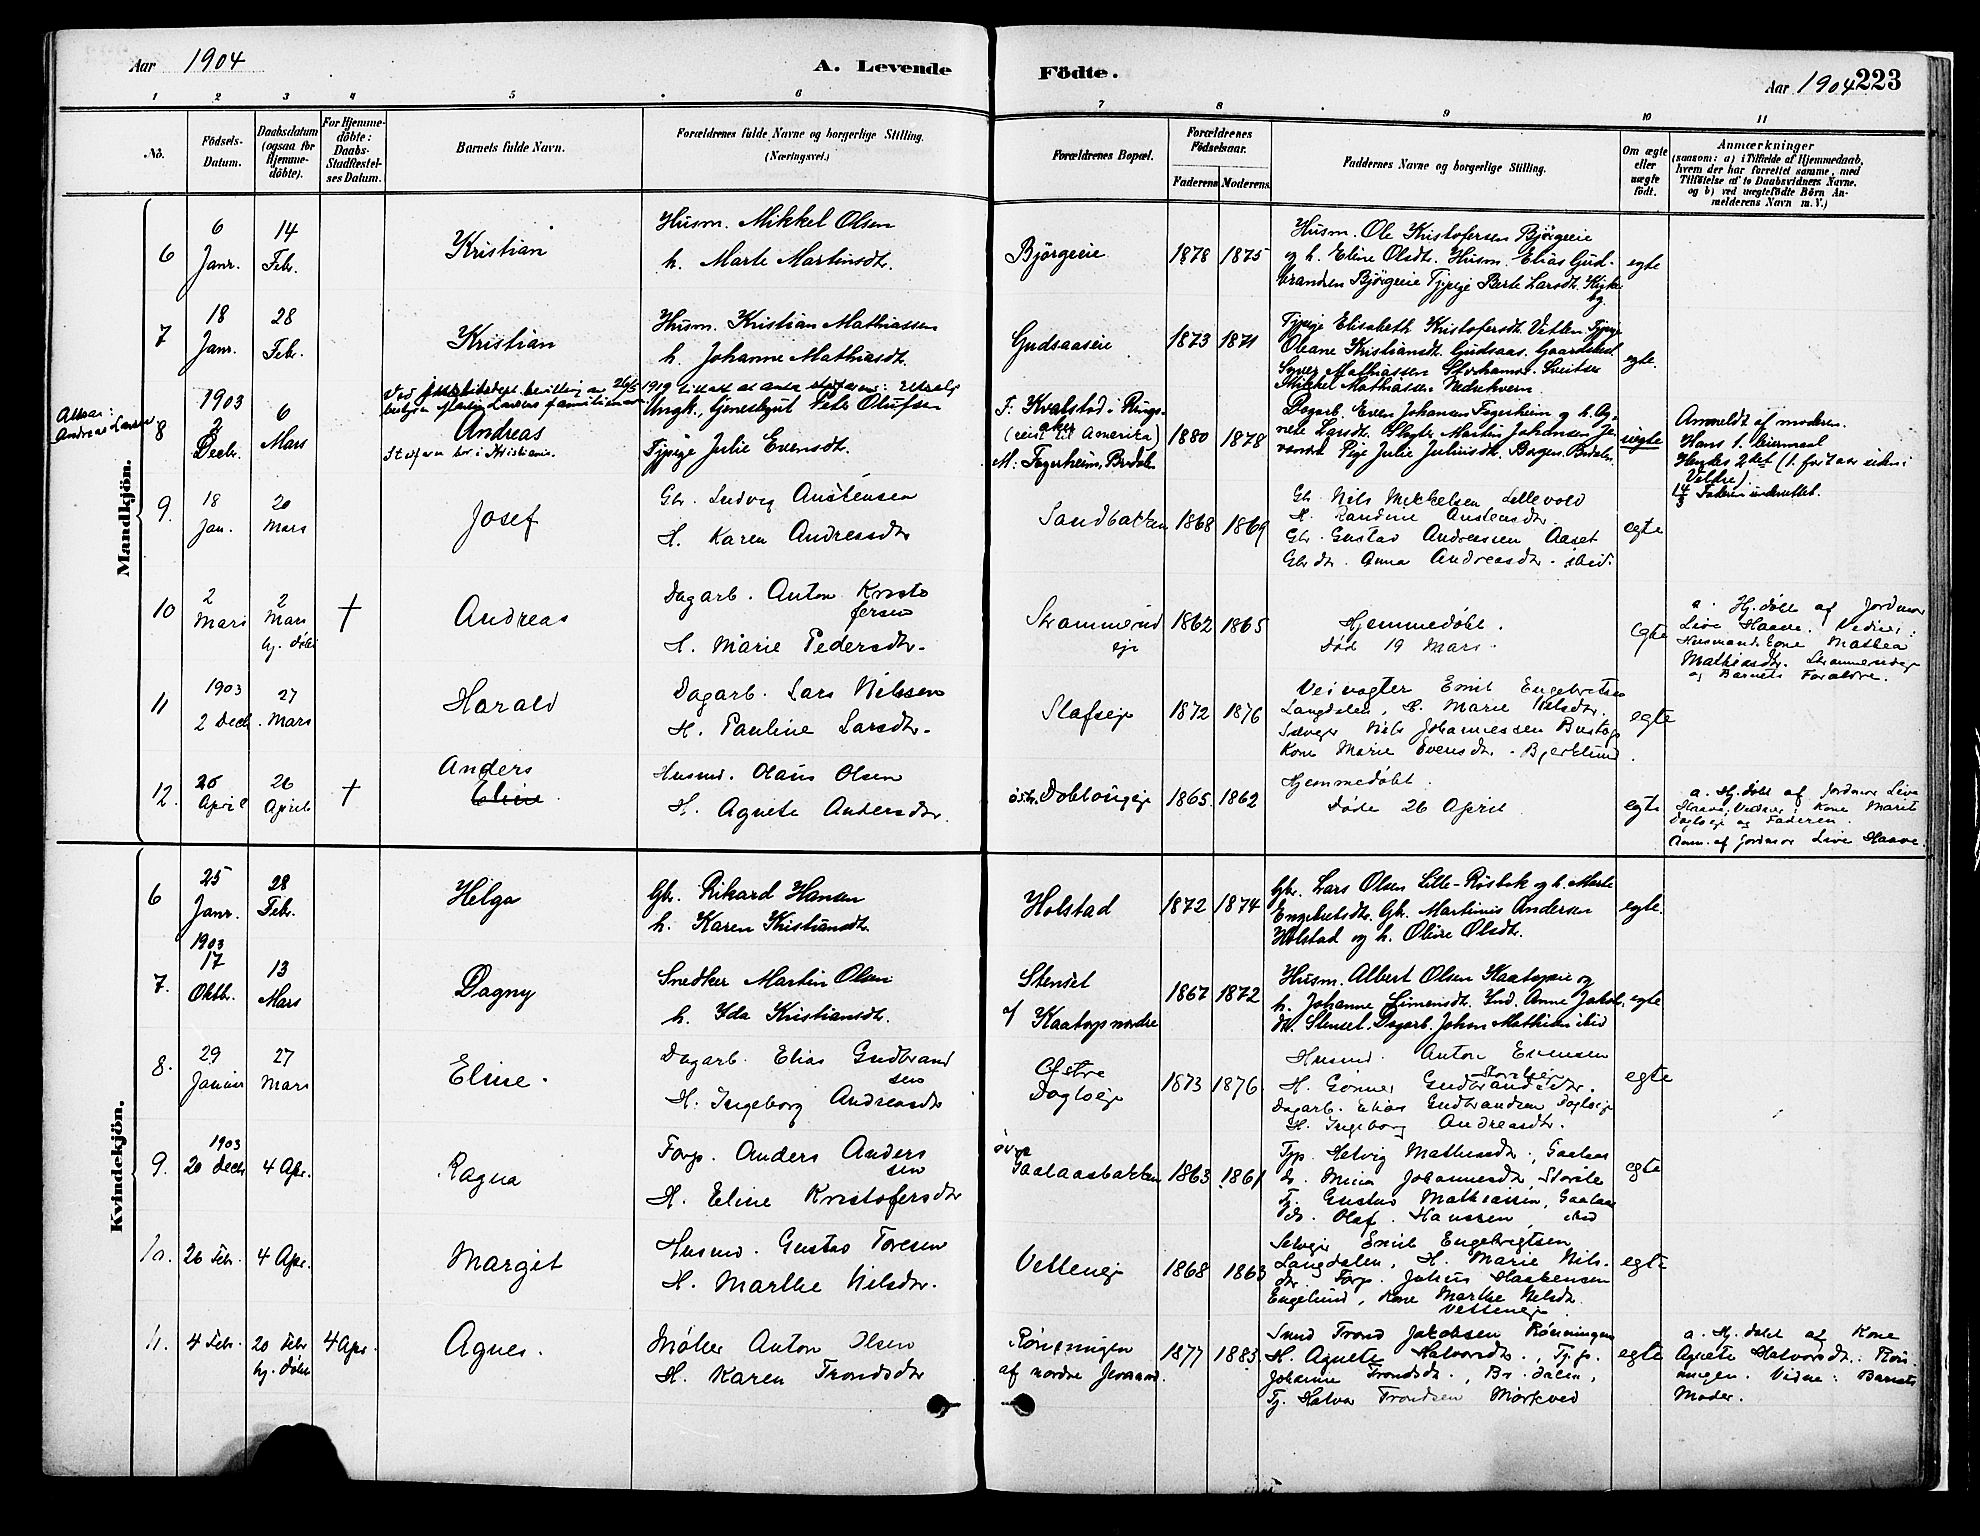 Aar 1904
A. Levende
Födte.
Aar 1904
223
1 2 3 4 5 6 7 8 9 10 11
No.
Födsels-
Datum.
Daabsdatum
(ogsaa for
Hjemme-
döbte).
For Hjemme-
döbte:
Daabs-
Stadfæstel-
ses Datum.
Barnets fulde Navn.
Forældrenes fulde Navne og borgerlige Stilling.
(Næringsvei.)
Forældrenes Bopæl.
Forældrenes
Födselsaar.
Faderens Moderens.
Faddernes Navne og borgerlige Stilling.
Om ægte
eller
uægte
födt.
Anmærkninger
(saasom: a) i Tilfælde af Hjemmedaab,
hvem der har forrettet samme, med
Tilföielse af to Daabsvidners Navne.
og b) ved uægtefödte Börn An-
melderens Navn m. V.)
Mandkjön.
6
6
Janr.
14
Febr.
Kristian
Husm. Mikkel Olsen
h. Marte Martinsdtr.
Bjørgeeie
1878 1875
Husm. Ole Kristofersen Bjørgeeie
og h. Eline Olsdtr. Husm. Elias Gud-
brandsen Bjørgeeie Tjpige Berte Larsdtr.
egte
7
18
Janr.
28
Febr.
Kristian
Husm. Kristian Mathiassen
h. Johanne Mathiasdtr.
Gudsaaseie
1873 1871
Tjpige Elisabeth Kristofersdtr.
Oleane Kristiansdtr. Gudsaas.
Mikkel Mathiassen
egte.
Andreas Larsen
8
1903
2
Decbr.
6
Mars
1919
Andreas
Stedfaren bor i Kristiania.
Ungk. Peter Olufsen
Tjpige Julie Evensdtr.
F: Kvalstad i Rings-
aker
(reist til Amerika)
M: Fagerheim, Brdalen
1880 1878
Dagarb. Even Johansen Fagerheim og h. Ag-
nete Larsdtr. Martin Johansen
Pige Julie Juliusdtr.
uegte
Anmeldt af moderen.
Hans 1. leiermaal
Hendes 2det
Veldre).
14/3 Faderen underrettet.
9.
18
Jan.
20
Mars
Josef
Gbr. Ludvig Austensen
H. Karen Andreasdtr
Sandbakken
1868 1869
Gbr. Nils Mikkelsen Lillevold
H. Randine Austensdtr.
Gbr. Gustav Andreassen Aaset
Gbr dtr. Anna Andreasdtr. ibid.
egte
10
2
Mars
2
Mars
hj. døbt
†
Andreas
Dagarb. Anton Kristo
fersen
H. Marie Pedersdtr.
Skrammerud
eje
1862 1865
Hjemmedøbt.
Død 19 Mars.
egte
a. Hj. døbt af Jordmor
Live Haave. Vidner:
Husmands Kone Mathea
Mathiasdtr. Skrammerudeje
og Barnets Forældre.
11
1903
2 Decb.
27
Mars
Harald
Dagarb. Lars Nilssen
H. Pauline Larsdtr.
Slafseje
1872 1876
Veivogter Emil Engebretsen
Langdalen, H. Marie Nilsdtr.
Nils Johannessen
Kone Marie Evensdtr. Bjerklund.
egte
12.
26
April
26
April
†
Anders
Husmd. Olaus Olsen
H. Agnete Andersdtr.
østr. Doblougeje
1865. 1862
Hjemmedøbt.
Døde 26 April
egte
a. Hj. døbt af Jordmor Live
Haave, Vidner: Kone Marit
Dagloeje og Faderen.
Anm. af Jordmor Live Haave.
Kvindekjön.
6
25
Janr.
28
Febr.
Helga
Gbr. Rikard Hansen
h. Karen Kristiansdtr.
Holstad
1872 1874
Gbr. Lars Olsen Lille-Røsbak og h. Marte
Engebretsdtr. Gbr. Martinus Andersen
Holstad og h. Oline Olsdtr.
egte.
7.
1903
17
Oktbr.
13
Mars
Dagny
Snedker Martin Olsen
h. Ida Kristiansdtr.
Stenset
af Kaatorp nordre
1867 1872
Husm. Albert Olsen Kaatorpeie og
h. Johanne Simensdtr. Ind. Anne Jakob-
dtr. Stenset. Dagarb. Johan Mathisen ibid
egte
8.
29
Januar
27
Mars
Eline.
Dagarb. Elias Gudbrand
sen
H. Ingeborg Andreasdtr
Østre
Dagloeje
1873 1876.
Husmd. Anton Evensen
H. Gunner Gudbrandsdtr.
Dagarb. Elias Gudbrandsen Dagloeje
H. Ingeborg Andreasdtr.
egte
9.
1903
20 Decb.
4 Apr.
Ragna
Forp. Anders Anders
sen
H. Eline Kristofersdtr
øvre
Gaalaasbakken
1863 1861
Tjp. Helvig Mathiasdtr., Gaalaas
do. Mina Johannesdtr,
Tj. Gustav Mathiassen, Gaalaas
do. Olaf Hanssen, ibid
egte
10.
26 Febr.
4 Apr.
Margit
Husmd. Gustav Toresen
H. Marthe Nilsdtr.
Vetteneje
1868 1863
Selvejer Emil Engebrigtsen
Langdalen, H. Marie Nils-
dtr. Forp. Julius Haakensen
Engelund, Kone Marthe Nilsdtr.
Vetteneje
egte
11.
4 Febr.
20 Febr
hj. døbt
4 Apr.
Agnes.
Møller Anton Olsen
H. Karen Trondsdtr
Rønningen
af nordre Jevaand.
1877 1883
Smed Trond Jakobsen Rønningen
H. Agnete Halvorsdtr., Tj. p.
Johanne Trondsdtr., Br.dalen,
Tj. Halvor Trondsen Mørkved
egte
a. Hj. døbt af Kone
Agnete Halvorsdtr. Røn-
ningen. Vidne: Barnets
Moder.